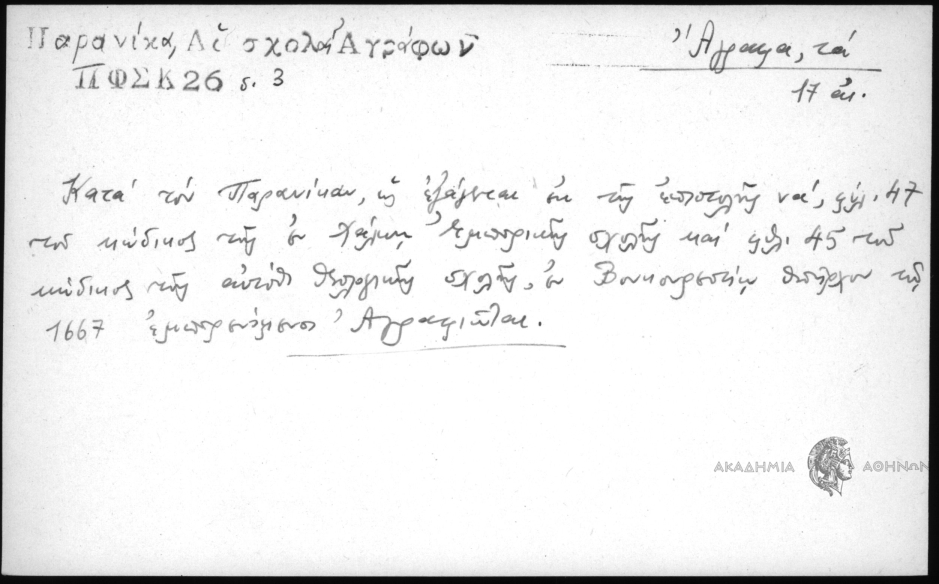 Παρανίκα, Αἱ σχολαί Ἀγράφων
ΠΦΣΚ 26 σ. 3
Ἄγραφα, τά
17 αἰ.
Κατά τόν Παρανίκαν, ὡς ἐξάγεται ἐκ τῆς ἐπιστολῆς να', φύλ. 47
τοῦ κώδικος τῆς ἐν Χάλκῃ Ἐμπορικῆς σχολῆς καί φύλ. 45 τοῦ
κώδικος τῆς αὐτόθι Θεολογικῆς σχολῆς, ἐν Βουκουρεστίῳ ὑπῆρχον τῷ
1667 ἐμπορευόμενοι Ἀγραφιῶται.
ΑΚΑΔΗΜΙΑ ΑΘΗΝΩΝ